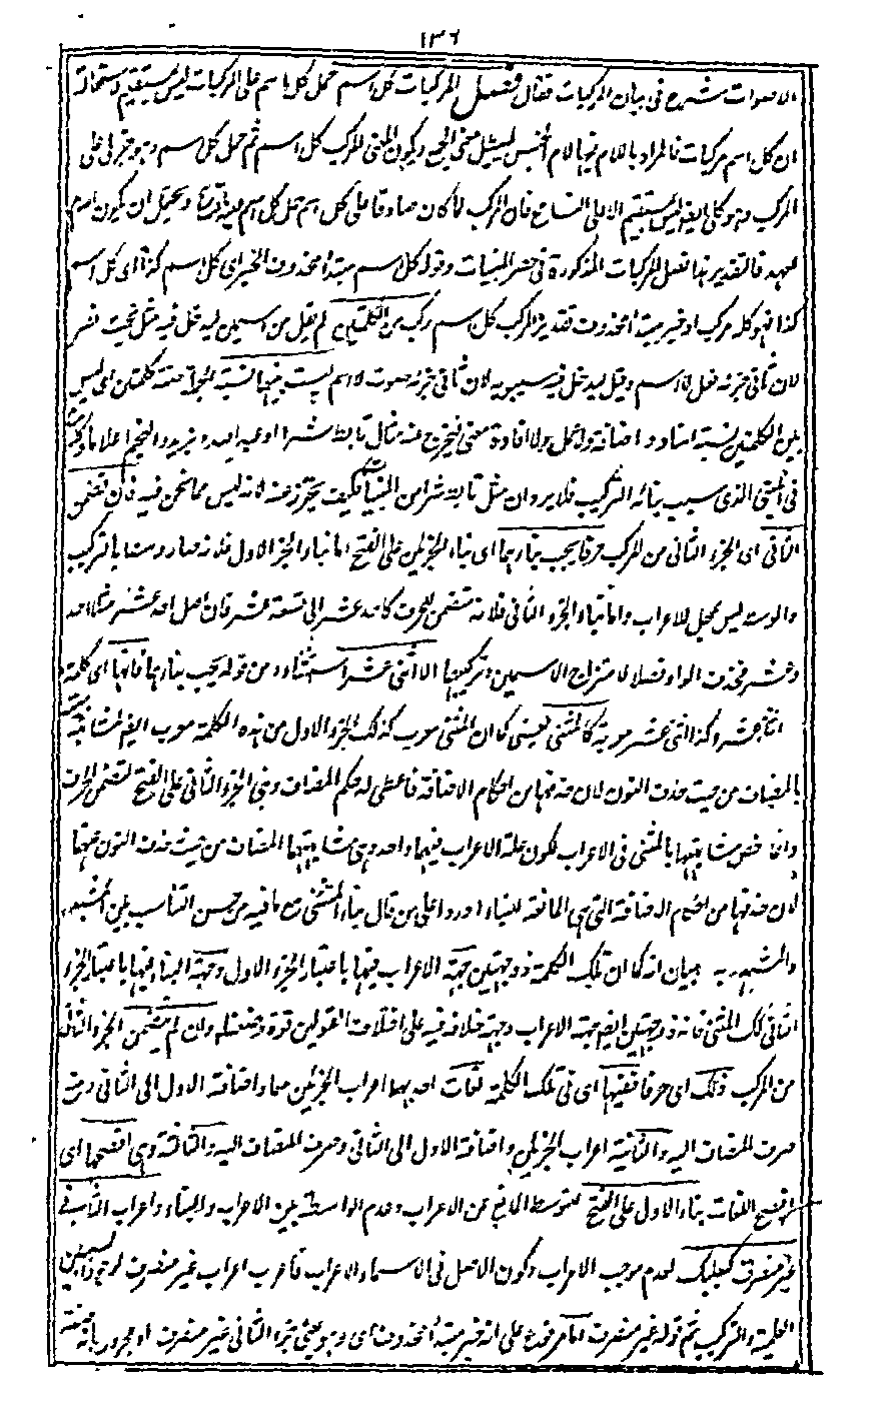 ١٣٦
الاصوات شرع فى بيان المركبات فقال فصل المركبات كل اسم حمل كل اسم على المركبات ليس بمستقيم
ان كل اسم مركبات فالمراد باللام فيها لام الجنس ليبطل معنى الجمع ويكون المعنى المركب كل اسم ثم حمل كل اسم وهو خبر على
المركب وهو كلى ايضا ليس بمستقيم الا على التسامح فان المركب لما كان صادقا على كل اسم حمل كل اسم عليه ويحتمل ان يكون اللام
للعهد فالتقدير هذا فصل المركبات المذكورة فى حصر المبنيات وقوله كل اسم مبتدأ محذوف الخبر اى كل اسم كذا اى كل اسم
كذا فهو كله مركب او خبر مبتدأ محذوف تقديره المركب كل اسم ركب من الكلمتين لم يقل من اسمين ليدخل فيه مثل بخت نصر
لان ثانى جزئه فعل لا اسم وقيل ليدخل فيه سيبويه لان ثانى جزئه صوت لا اسم ليست بينهما نسبة الجملة صفة كلمتين اى ليس
بين الكلمتين نسبة اسناد و اضافة ولا عمل ولا افادة معنى فيخرج عنه مثال تابط شرا او عبد الله و زيد والنجم اعلاما
فى المبنى الذى سبب بنائه التركيب فلا يرد ان مثل تابط شرا من المبنيات فكيف يحترز عنه لانه ليس مما نحن فيه فان تضمن
الثانى اى الجزء الثانى من المركب حرفا يجب بناءهما اى بناء الجزئين على الفتح اما بناء الجزء الاول فلانه صار وسطا بالتركيب
والوسط ليس بمحل للاعراب واما بناء الجزء الثانى فلانه متضمن للحرف كاحد عشر الى تسعة عشر فان اصل احد عشر مثلا احد
وعشر فحذف الواو قصدا لامتزاج الاسمين وتركيبهما الا اثنى عشر استثناء من قوله يجب بناءهما فانها اى كلمة
اثنا عشر وكذا اثنى عشر معربة كالمثنى يعنى كما ان المثنى معرب كذلك الجزء الاول من هذه الكلمة معرب ايضا لمشابهته
بالمضاف من حيث حذف النون لان حذفها من احكام الاضافة فاعطى له حكم المضاف وبنى الجزء الثانى على الفتح لتضمن الحرف
وانما خص مشابهتها بالمثنى فى الاعراب لكون علة الاعراب فيهما واحد وهى مشابهتهما المضاف من حيث حذف النون عنهما
لان حذفها من احكام الاضافة التى هى المانعة للبناء او ردا على من قال ببناء المثنى مع ما فيه من حسن التناسب بين المشبه
والمشبه به بيان انه كما ان تلك الكلمة ذو جهتين جهة الاعراب فيها باعتبار الجزء الاول وجهة البناء فيها باعتبار الجزء
الثانى كذلك المثنى فانه ذو جهتين ايضا جهة الاعراب وجهة خلافه فيه على اختلاف القولين قوة وضعفا وان لم يتضمن الجزء الثانى
من المركب ذلك اى حرفا ففيها اى فى تلك الكلمة لغات احدها اعراب الجزئين معا واضافة الاول الى الثانى ومنع
صرف المضاف اليه والثانية اعراب الجزئين واضافة الاول الى الثانى وصرف المضاف اليه والثالثة وهى افصحها اى
افصح اللغات بناء الاول على الفتح لتوسط المانع عن الاعراب وعدم الواسطة بين الاعراب والبناء واعراب الثانى
غير منصرف كبعلبك لعدم موجب الاعراب وكون الاصل فى الاسماء الاعراب فاعرب اعراب غير منصرف لوجود السببين
العلمية والتركيب ثم قوله غير منصرف اما مرفوع على انه خبر مبتدأ محذوف اى وهو يعنى جزء الثانى غير منصرف او مجرور بانه صفة